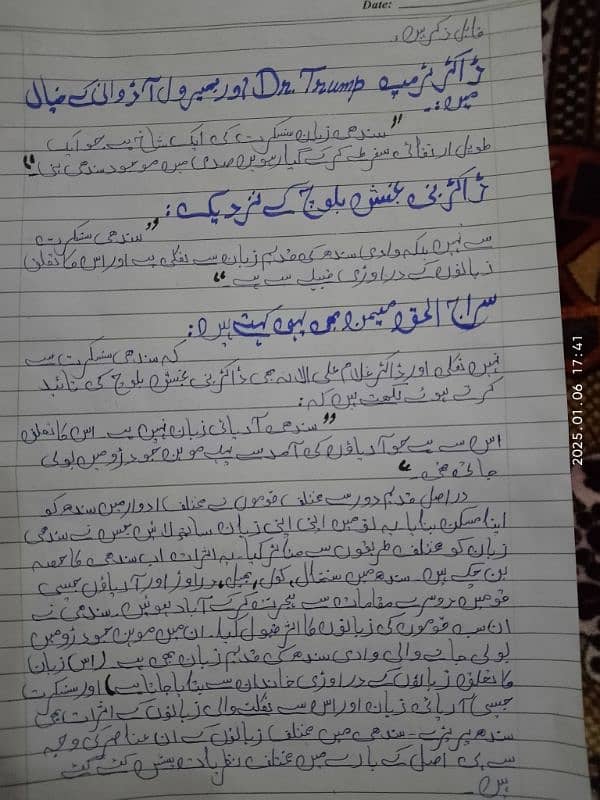 Date:
قابل ذکر ہیں۔
ڈاکٹر ٹرمپ Dr. Trump اور بھیرو مل آڈوانی کے خیال
میں:۔
"سندھی زبان سنسکرت کی ایک شاخ ہے جو ایک
طویل ارتقائی سفر طے کر کے گیارہویں صدی میں موجودہ سندھی بنی"
ڈاکٹر نبی بخش بلوچ کے نزدیک:
"سندھی سنسکرت
سے نہیں بلکہ وادی سندھ کی قدیم زبان سے نکلی ہے اور اس کا تعلق
زبانوں کے دراوڑی قبیلے سے ہے"
سراج الحق میمن بھی یہی کہتے ہیں:
کہ سندھی سنسکرت سے
نہیں نکلی اور ڈاکٹر غلام علی الانہ بھی ڈاکٹر نبی بخش بلوچ کی تائید
کرتے ہوئے لکھتے ہیں کہ:
"سندھی آریائی زبان نہیں ہے۔ اس کا تعلق
اس سے ہے جو آریاؤں کی آمد سے پہلے موہن جو دڑو میں بولی
جاتی تھی۔"
دراصل قدیم دور سے مختلف قوموں نے مختلف ادوار میں سندھ کو
اپنا مسکن بنایا یہ لوگ اپنی اپنی زبان ساتھ لائیں جس نے سندھی
زبان کو مختلف طریقوں سے متاثر کیا۔ یہ اثرات اب سندھی کا حصہ
بن چکے ہیں۔ سندھ میں سنتھال، کول، بھیل، دراوڑ اور آریاؤں جیسی
قومیں دوسرے مقامات سے ہجرت کر کے آباد ہوئیں۔ سندھی نے
ان سب قوموں کی زبانوں کا اثر قبول کیا۔ ان میں موہن جو دڑو میں
بولی جانے والی وادی سندھ کی قدیم زبان بھی ہے (اس زبان
کا تعلق زبانوں کے دراوڑی خاندان سے بتایا جاتا ہے) اور سنسکرت
جیسی آریائی زبان اور اس سے نکلنے والی زبانوں کے اثرات بھی
سندھی پر پڑے۔ سندھی میں مختلف زبانوں کے ان عناصر کی وجہ
سے ہی اصل کے بارے میں مختلف نظریات پیش کئے گئے
ہیں۔
2025.01.06 17:41